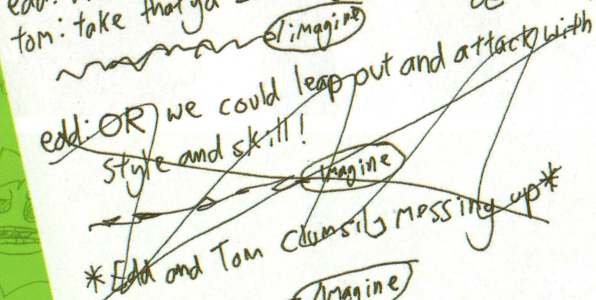 edd:
tom: take that ya
imagine
edd: OR we could leap out and attack with
style and skill!
imagine
*Edd and Tom clumsily messing up*
imagine